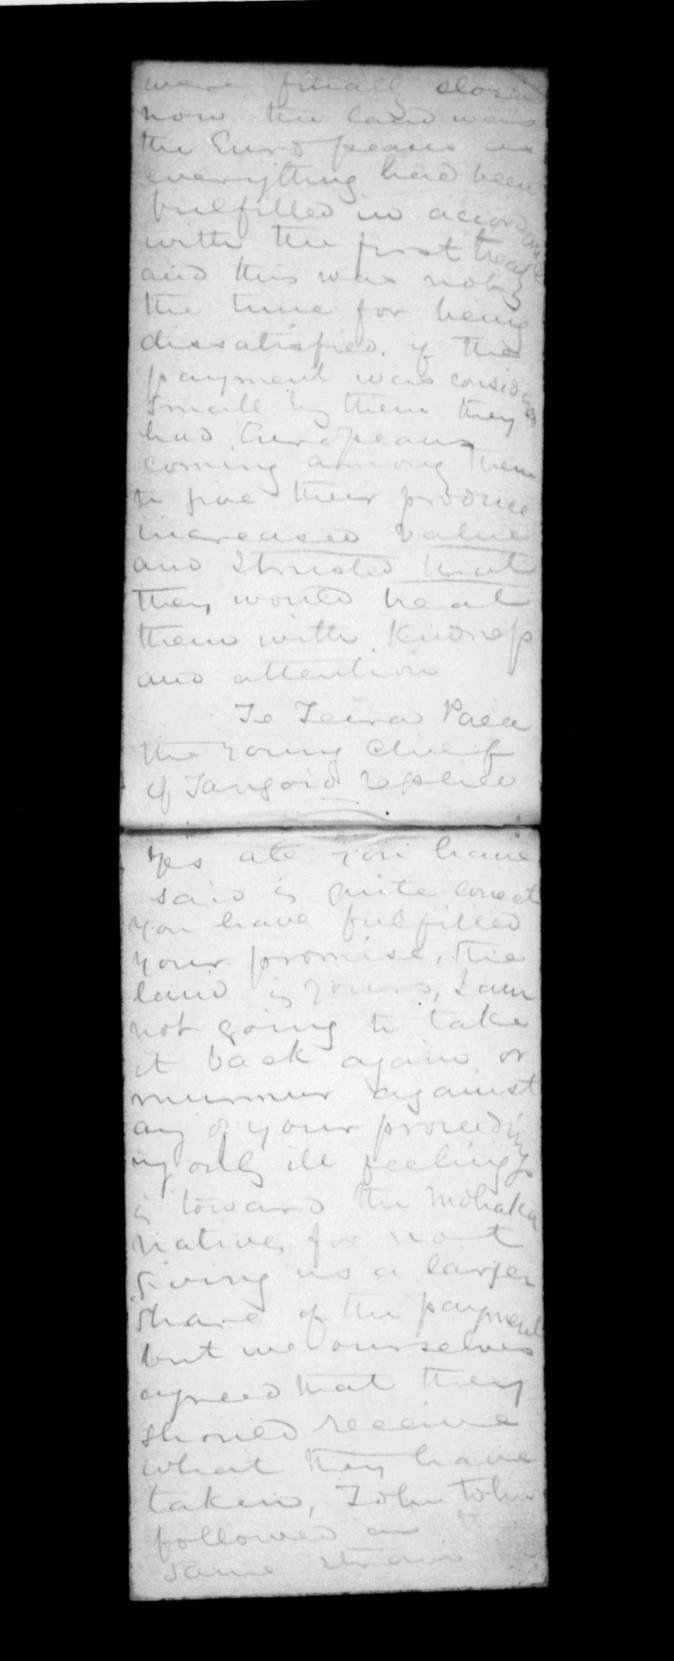 were finally closed
now the land was
the Europeans as
everything had been
fulfilled in accordance
with the first treaty
and this was not
the time for being
dissatisfied. if the
payment was considered
small by them they
had Europeans
coming among them
to give their produce
increased value
and I trusted that
they would treat
them with kindness
and attention
Te Teira Paea
the young chief
of Tangoio replied
Yes all you have
said is quite correct
you have fulfilled
your promise, the
land is yours, I am
not going to take
it back again or
murmur against
any of your proceedings
my only ill feelings
is toward the Mohaka
natives for not
giving us a larger
share of the payment
but we ourselves
agreed that they
should receive
what they have
taken, Tohu tohu
followed in
same strain